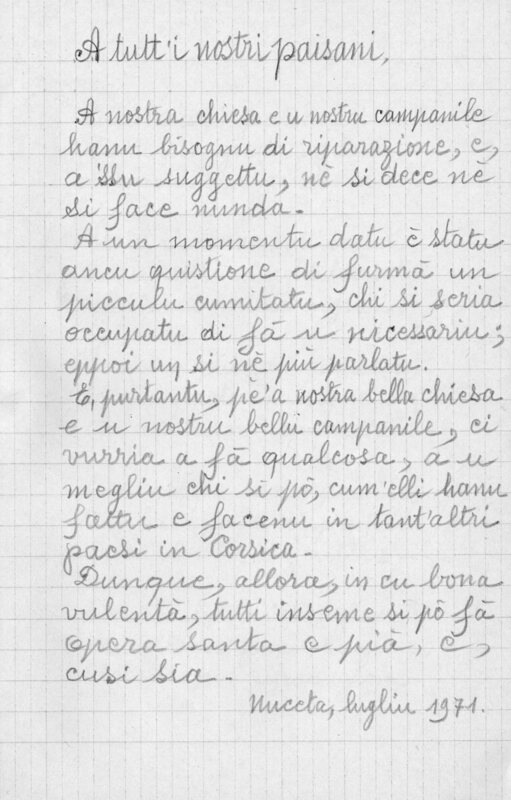 A tutt'i nostri paisani,
A nostra chiesa e u nostru campanile
hanu bisognu di riparazione, e,
a 'ssu suggettu, nè si dece nè
si face nunda.
A un momentu datu è statu
ancu quistione di furmà un
picculu cumitatu, chi si seria
occupatu di fà u nicessariu;
eppoi un si nè più parlatu.
E, purtantu, pè 'a nostra bella chiesa
e u nostru bellu campanile, ci
vurria a fà qualcosa, a u
megliu chi si pò, cum'elli hanu
fattu e facenu in tant'altri
paesi in Corsica.
Dunque, allora, in cu bona
vulentà, tutti inseme si pò fà
opera santa e pià, e,
cusi sia.
Nuceta, lugliu 1971.